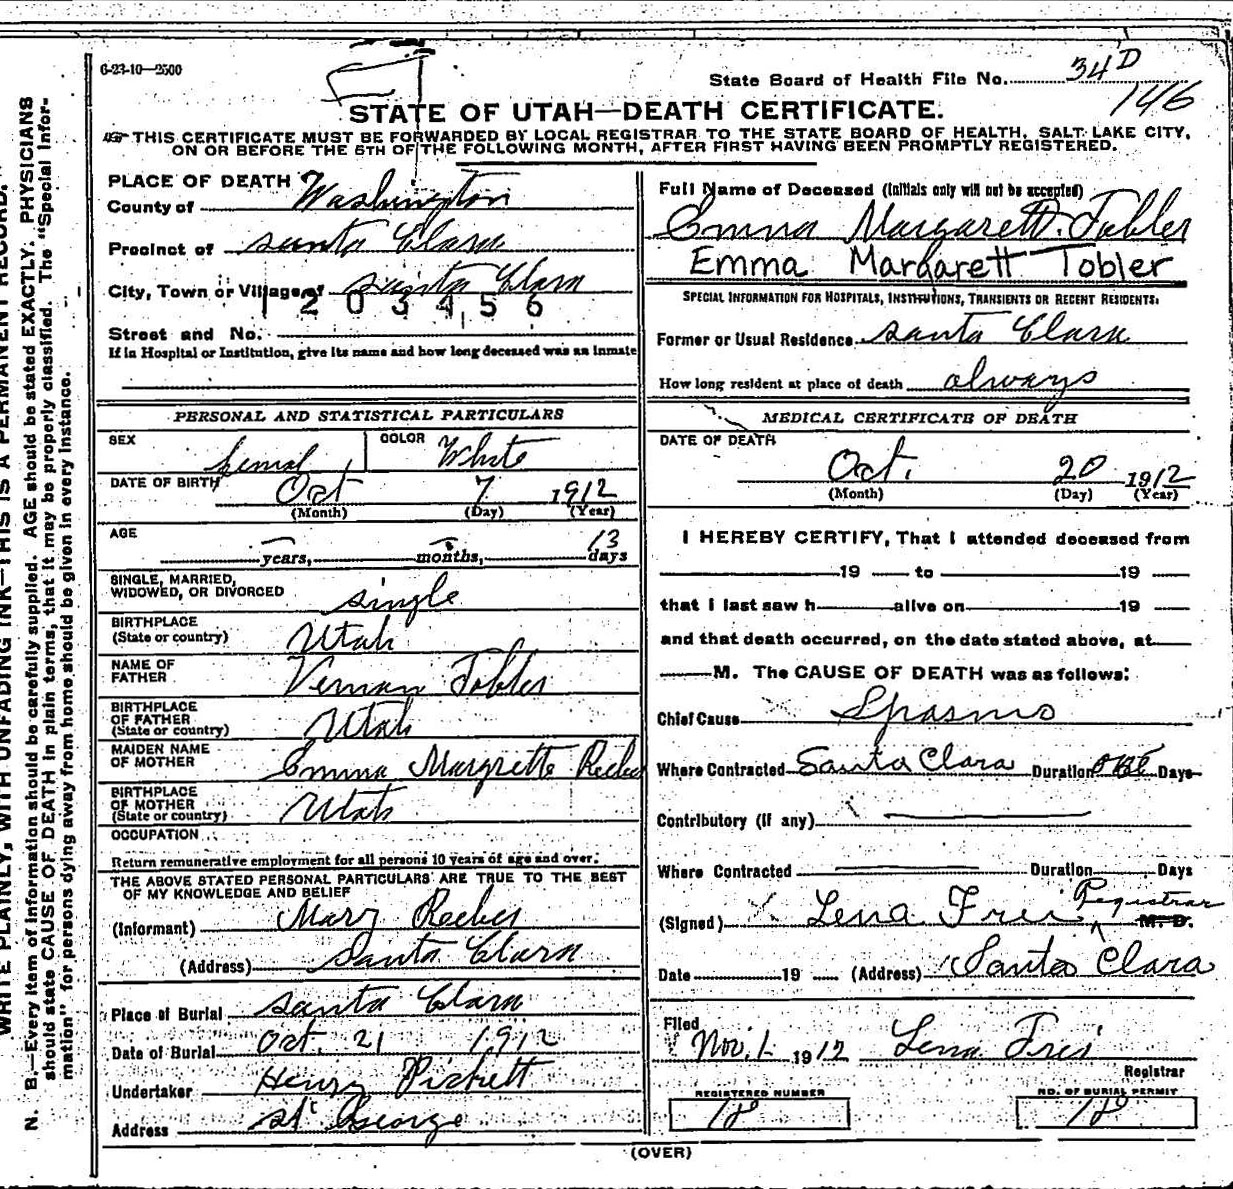 6-23-10—2500
State Board of Health File No. 34 D
146
STATE OF UTAH—DEATH CERTIFICATE.
THIS CERTIFICATE MUST BE FORWARDED BY LOCAL REGISTRAR TO THE STATE BOARD OF HEALTH, SALT LAKE CITY,
ON OR BEFORE THE 5TH OF THE FOLLOWING MONTH, AFTER FIRST HAVING BEEN PROMPTLY REGISTERED.
PLACE OF DEATH
County of Washington
Precinct of Santa Clara
City, Town or Village of Santa Clara
1 2 0 3 4 5 6
Street and No.
If in Hospital or Institution, give its name and how long deceased was an inmate
PERSONAL AND STATISTICAL PARTICULARS
SEX femal COLOR White
DATE OF BIRTH Oct 7 1912
(Month) (Day) (Year)
AGE
years, months, 13 days
SINGLE, MARRIED,
WIDOWED, OR DIVORCED single
BIRTHPLACE
(State or country) Utah
NAME OF
FATHER Vernan Tobler
BIRTHPLACE
OF FATHER
(State or country) Utah
MAIDEN NAME
OF MOTHER Emma Margrette Reeber
BIRTHPLACE
OF MOTHER
(State or country) Utah
OCCUPATION
Return remunerative employment for all persons 10 years of age and over.
THE ABOVE STATED PERSONAL PARTICULARS ARE TRUE TO THE BEST
OF MY KNOWLEDGE AND BELIEF
(Informant) Mary Reeber
(Address) Santa Clara
Place of Burial Santa Clara
Date of Burial Oct. 21 1912
Undertaker Henry Pickett
Address St George
Full Name of Deceased (Initials only will not be accepted)
Emma Margarett Tobler
Emma Margarett Tobler
SPECIAL INFORMATION FOR HOSPITALS, INSTITUTIONS, TRANSIENTS OR RECENT RESIDENTS.
Former or Usual Residence Santa Clara
How long resident at place of death always
MEDICAL CERTIFICATE OF DEATH
DATE OF DEATH
Oct. 20 1912
(Month) (Day) (Year)
I HEREBY CERTIFY, That I attended deceased from
19 to 19
that I last saw h alive on 19
and that death occurred, on the date stated above, at
M. The CAUSE OF DEATH was as follows:
Chief Cause Spasms
Where Contracted Santa Clara Duration one Days
Contributory (if any)
Where Contracted Duration Days
Registrar
(Signed) Lena Frei M. D.
Date 19 (Address) Santa Clara
Filed
Nov. 1 1912 Lena Frei
Registrar
REGISTERED NUMBER NO. OF BURIAL PERMIT
18 18
(OVER)
WRITE PLAINLY, WITH UNFADING INK—THIS IS A PERMANENT RECORD.
N. B.—Every item of information should be carefully supplied. AGE should be stated EXACTLY. PHYSICIANS
should state CAUSE OF DEATH in plain terms, that it may be properly classified. The "Special Infor-
mation" for persons dying away from home should be given in every instance.